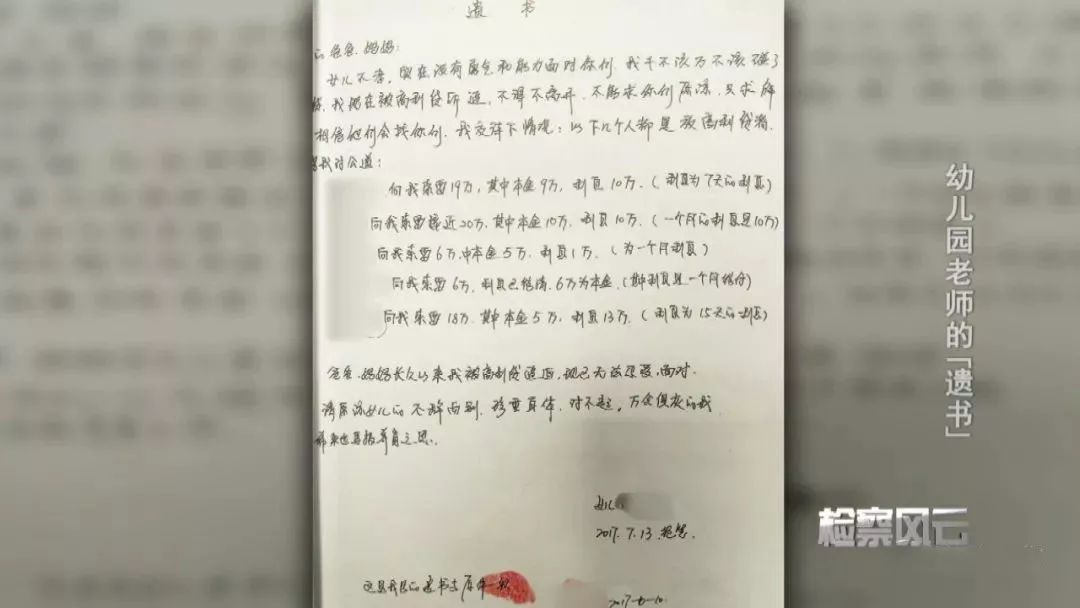 遗 书
爸爸、妈妈:
女儿不孝,现在没有勇气和能力面对你们,我千不该万不该碰了
我现在被高利贷所逼,不得不离开,不能求你们原谅,只求
相信他们会找你们,我交待下情况:以下几个人都是放高利贷者,
我讨公道:
向我索要19万,其中本金9万,利息10万.(利息为7天的利息)
向我索要接近20万,其中本金10万,利息10万.(一个月的利息是10万)
向我索要6万,中本金5万,利息1万.(为一个月利息)
向我索要6万,利息已结清,6万为本金,(利息是一个月结付)
向我索要18万,其中本金5万,利息13万.(利息为15天的利息)
爸爸、妈妈长久以来我被高利贷追逼,现已无法承受,面对.
请原谅女儿的不辞而别,珍重身体,对不起,万念俱灰的我
来世再报养育之恩.
女儿
2017.7.13
这是我的遗书与原件一致
幼儿园老师的「遗书」
检察风云